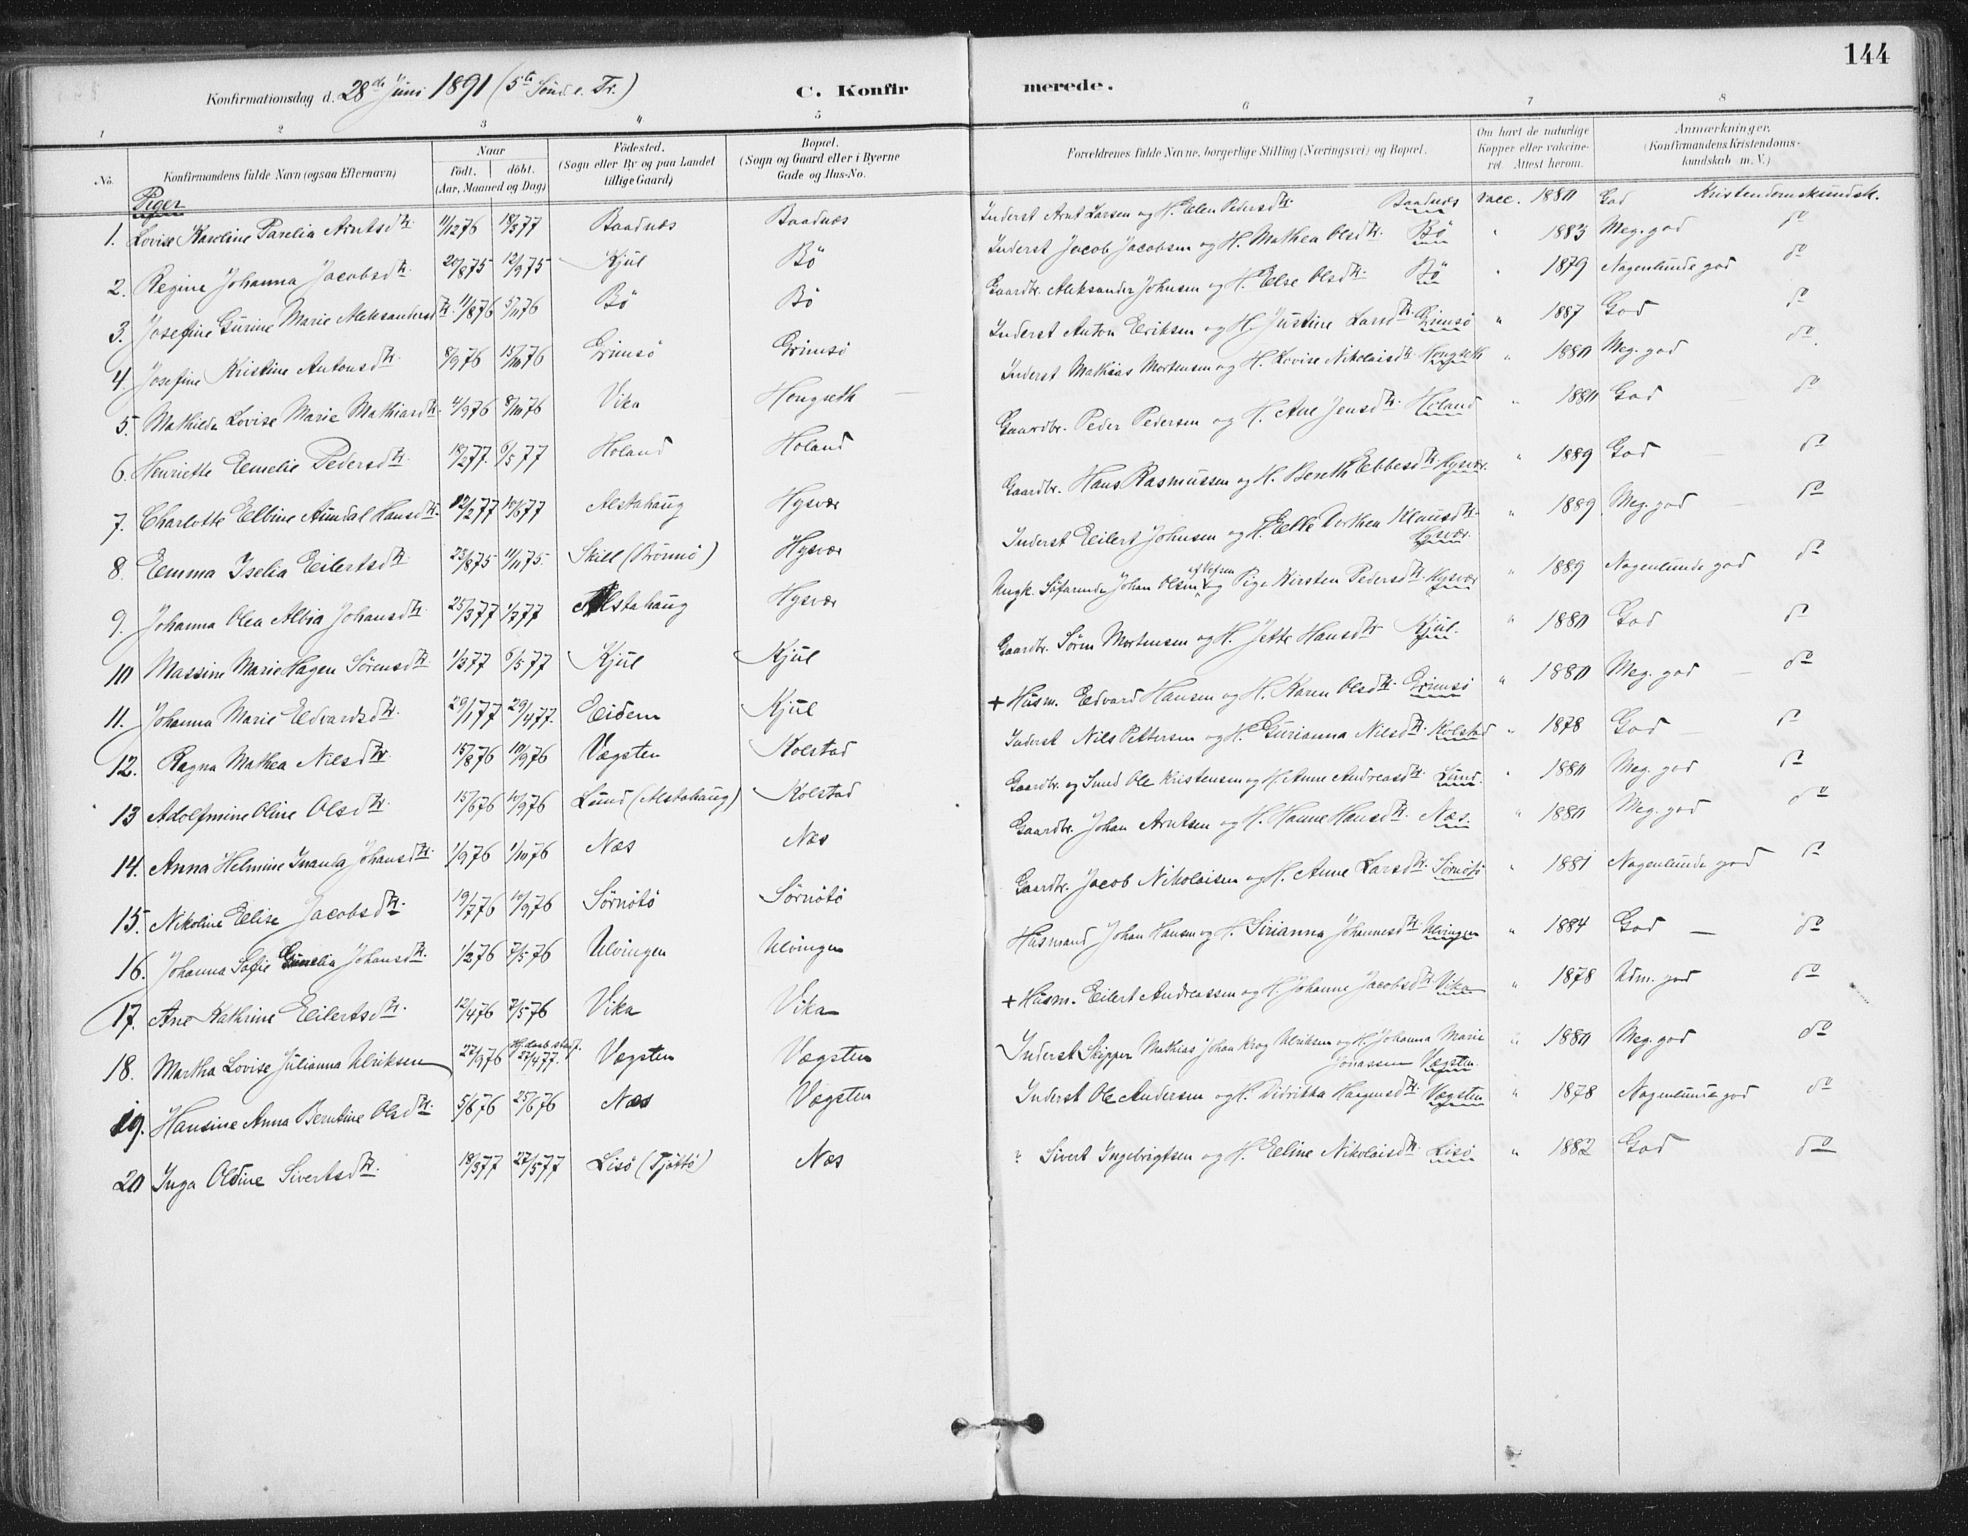 144
Konfirmationsdag d. 28de Juni 1891 (5te Sønd. e. Tr.) C. Konfirmerede.
1 2 3 4 5 6 7 8
No. Konfirmandens fulde Navn (ogsaa Efternavn) Naar Født. døbt. (Aar, Maaned og Dag) Fødested. (Sogn eller By og paa Landet tillige Gaard) Bopæl. (Sogn og Gaard eller i Byerne Gade og Hus-No.) Forældrenes fulde Navne, borgerlige Stilling (Næringsvei) og Bopæl. Om havt de naturlige Kopper eller vakcineret. Attest herom. Anmærkninger. (Konfirmandens Kristendomskundskab m. V.)
Piger
1. Lovise Karoline Parelia Arntsdtr. 11/1276 18/377 Baadnæs Baadnæs Inderst Arnt Larsen og H. Elen Pedersdtr. Baadnæs vacc. 1880 God Kristendomskundsk.
2. Regine Johanna Jacobsdtr. 20/875 12/975 Kjul Bö Inderst Jacob Jacobsen og H. Mathea Olsdtr. Bö " 1883 Meg. god do
3. Josefine Gurine Marie Aleksandersdtr. 11/876 5/1176 Bö Bö Gaardbr. Aleksander Johnsen og H. Else Olsdtr. Bö " 1879 Nogenlunde god do
4. Josefine Kristine Antonsdtr. 8/976 15/1076 Grimsö Grimsö Inderst Anton Eriksen og H. Justine Larsdtr. Grimsö " 1887 God do
5. Mathilde Lovise Marie Mathiasdtr. 4/976 8/1076 Vika Hongseth Inderst Mathias Mortensen og H. Lovise Nikolaisdtr. Hongseth " 1880 Meg. god do
6. Henriette Emelie Pedersdtr. 18/277 6/577 Holand Holand Gaardbr. Peder Pedersen og H. Ane Jensdtr. Holand " 1880 God do
7. Charlotte Elbine Aundal Hansdtr. 12/277 10/677 Alstahaug Hysvær Gaardbr. Hans Rasmussen og H. Bereth Ebbesdtr. Hysvær. " 1889 God do
8. Emma Iselia Eilertsdtr. 23/875 11/1175 Skill (Brönnö) Hysvær Inderst Eilert Johnsen og H. Elle Dorthea Klausdtr. Hysvær. " 1889 Meg. god do
9. Johanna Olea Albia Johansdtr. 25/377 1/777 Alstahaug Hysvær Ungk. Söfarende Johan Olsen af Vefsen og Pige Kirsten Pedersdtr. Hysvær " 1889 Nogenlunde god do
10 Massine Marie Hagen Sørensdtr. 1/377 6/577 Kjul Kjul Gaardbr. Sørn Mortensen og H. Jette Hansdtr. Kjul. " 1880 God do
11. Johanna Marie Edvardsdtr. 29/177 29/477. Eidem Kjul + Husm. Edvard Hansen og H. Karen Olsdtr. Grimsö " 1880 Meg. god do
12. Ragna Mathea Nilsdtr. 15/876 10/976 Vægsten Kolstad Inderst Nils Pettersen og H. Gurianna Nilsdtr. Kolstad " 1878 God do
13 Adolfmine Oline Olsdtr. 15/676 10/976 Lund (Alstahaug) Kolstad Gaardbr. og Smed Ole Kristensen og H. Anne Andreasdtr. Lund. " 1880 Meg. god do
14. Anna Helmine Inanda Johansdtr. 1/976 1/1076 Næs Næs Gaardbr. Johan Arntsen og H. Hanne Hansdtr. Næs. " 1880 Meg. god do
15. Nikoline Elise Jacobsdtr. 19/776 10/976 Sørnötö Sørnötö Gaardbr. Jacob Nikolaisen og H. Anne Larsdtr. Sørnötö " 1881 Nogenlunde god do
16. Johanna Sofie Johansdtr. 1/276 7/576 Ulvingen Ulvingen Husmand Johan Hansen og H. Sirianna Johannesdtr. Ulvingen " 1884 God do
17. Ane Kathrine Eilertsdtr. 12/476 7/576 Vika Vika + Husm. Eilert Andreassen og H. Johanne Jacobsdtr. Vika " 1878 Udm. god do
18. Martha Lovise Julianna Ulriksen 27/976 Hj.daab stadf. 22/477. Vægsten Vægsten Inderst Skipper Mathias Johan Krog Ulriksen og H. Johanna Marie Jonassen Vægsten. " 1880 Meg. god do
19. Hansine Anna Berntine Olsdtr. 5/676 25/676 Næs Vægsten Inderst Ole Andersen og H. Didrikka Hagensdtr. Vægsten " 1878 Nogenlunde god do
20 Inga Oldine Sivertsdtr. 18/377 27/577 Lisö (Tjöttö) Næs " Sivert Ingebrigtsen og H. Eline Nikolaisdtr. Lisö " 1882 God do